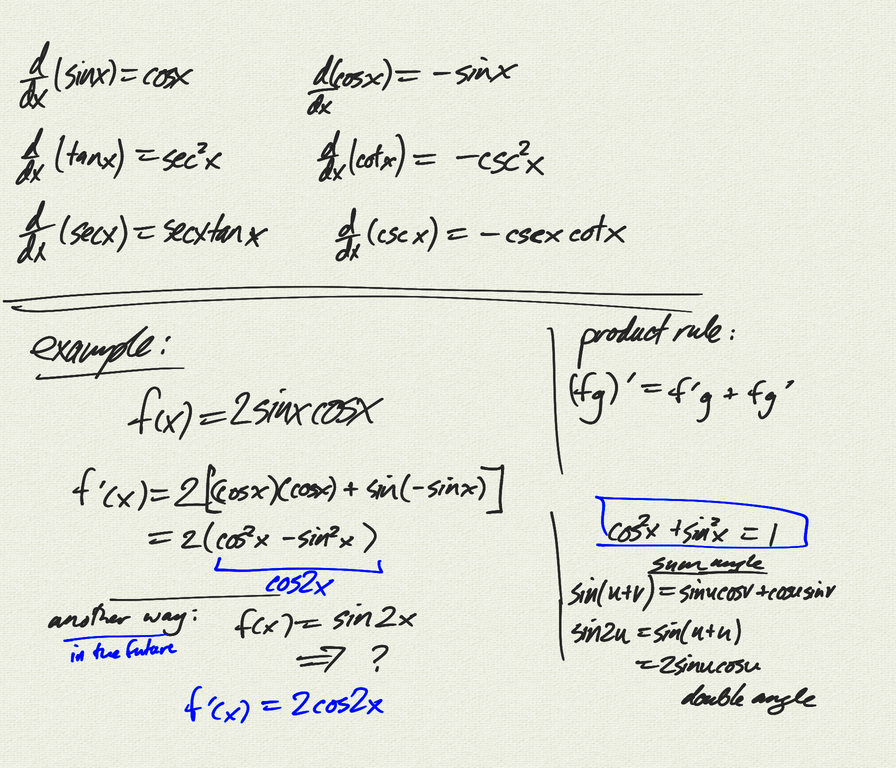 d/dx (sinx) = cosx
d/dx (cosx) = -sinx
d/dx (tanx) = sec²x
d/dx (cotx) = -csc²x
d/dx (secx) = secxtanx
d/dx (cscx) = -cscx cotx
example:
f(x) = 2sinxcosx
f'(x) = 2[(cosx)(cosx) + sin(-sinx)]
= 2(cos²x - sin²x)
cos2x
another way:
in the future
f(x) = sin2x
⇒ ?
f'(x) = 2cos2x
product rule:
(fg)' = f'g + fg'
cos²x + sin²x = 1
sum angle
sin(u+v) = sinucosv + cosusinv
sin2u = sin(u+u)
= 2sinucosu
double angle